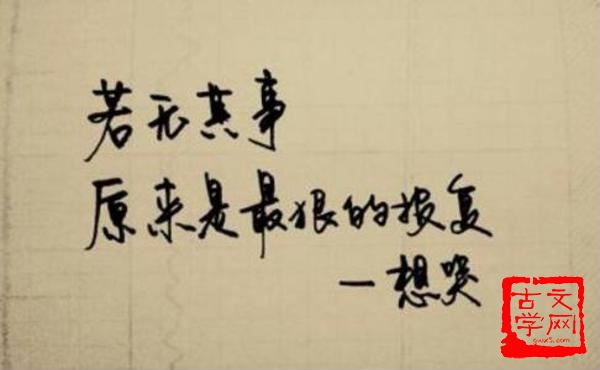 若无其事
原来是最狠的报复
—想哭
古文
学网